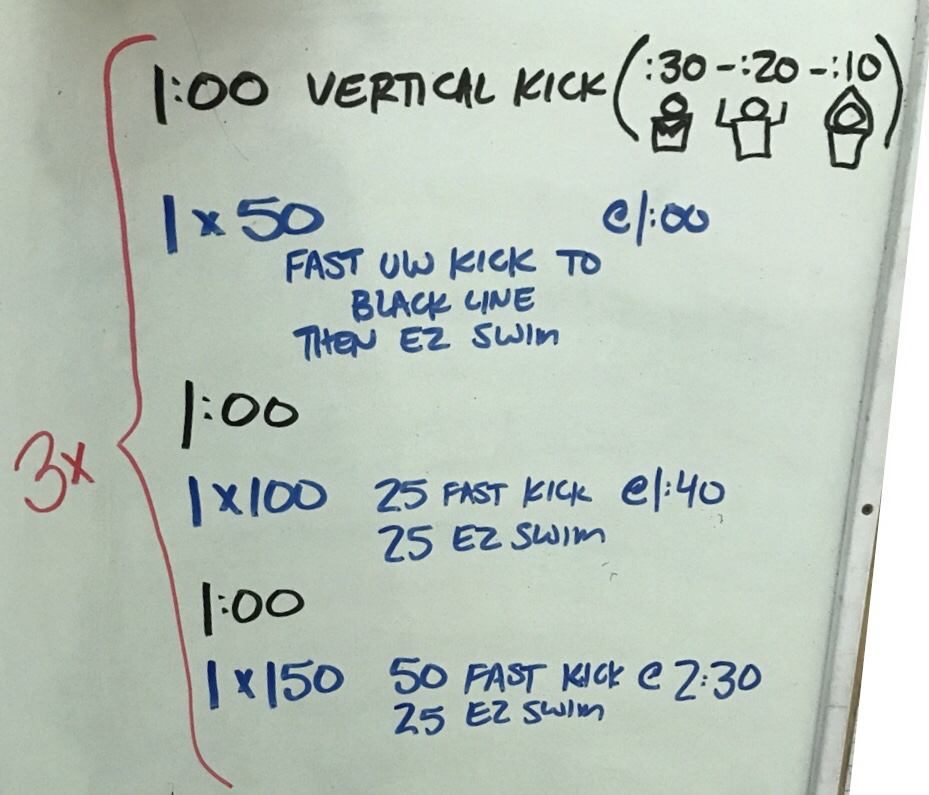 1:00 VERTICAL KICK (:30 - :20 - :10)
1 x 50 @1:00
FAST UW KICK TO
BLACK LINE
THEN EZ SWIM
1:00
3x
1 x 100 25 FAST KICK @1:40
25 EZ SWIM
1:00
1 x 150 50 FAST KICK @ 2:30
25 EZ SWIM